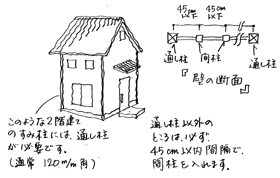 45cm以下
45cm以下
通し柱
間柱
通し柱
『壁の断面』
このような2階建て
のすみ柱には、通し柱
が必要です。
(通常 120m/m角)
通し柱以外の
ところは必ず
45cm以内間隔で、
間柱を入れます。